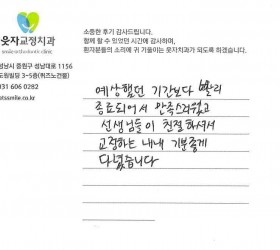 소중한 후기 감사드립니다.
함께 할 수 있었던 시간에 감사하며,
환자분들의 소리에 귀 기울이는 웃자치과가 되도록 하겠습니다.
웃자교정치과
성남시 중원구 성남대로 1156
도원빌딩 3~5층(위즈노건물)
031 606 0282
otssmile.co.kr
예상했던 기간보다 빨리
종료되어서 만족스러웠고
선생님들이 친절하셔서
교정하는 내내 기분좋게
다녔습니다